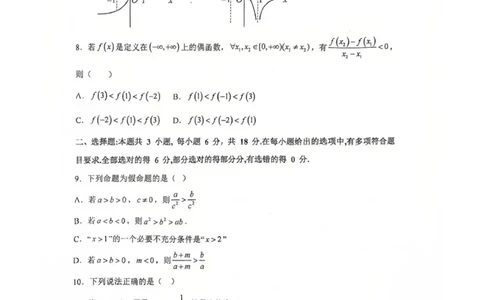 8. 若 f(x) 是定义在 (-∞,+∞) 上的偶函数, ∀x₁,x₂∈[0,+∞)(x₁≠x₂), 有 (f(x₂)-f(x₁))/(x₂-x₁)<0,
则 ( )
A. f(3)<f(1)<f(-2) B. f(1)<f(-1)<f(3)
C. f(-2)<f(1)<f(3) D. f(3)<f(-2)<f(1)
二、选择题:本题共 3 小题, 每小题 6 分, 共 18 分.在每小题给出的选项中,有多项符合题
目要求.全部选对的得 6 分,部分选对的得部分分,有选错的得 0 分.
9. 下列命题为假命题的是 ( )
A. 若 a>b>0, c≠0, 则 a/c²>b/c²
B. 若 a<b<0, 则 a²>b²>ab.
C. “x>1”的一个必要不充分条件是“x>2”
D. 若 a>b>0, m<0, 则 (b+m)/(a+m)>b/a
10. 下列说法正确的是 ( )